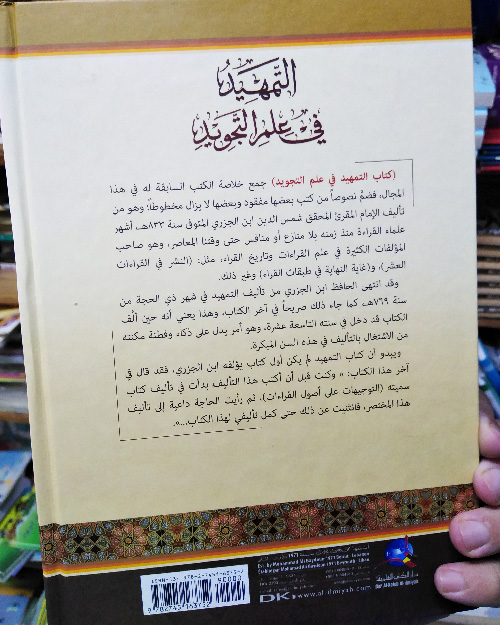 التمهيد
في علم التجويد
(كتاب التمهيد في علم التجويد) جمع خلاصة الكتب السابقة له في هذا
المجال، فضمَّ نصوصاً من كتب بعضها مفقود وبعضها لا يزال مخطوطاً؛ وهو من
تأليف الإمام المقرئ المحقق شمس الدين ابن الجزري المتوفى سنة ٨٣٣هـ، أشهر
علماء القراءة منذ زمنه بلا منازع أو منافس حتى وقتنا المعاصر، وهو صاحب
المؤلفات الكثيرة في علم القراءات وتاريخ القراء، مثل: (النشر في القراءات
العشر)، و(غاية النهاية في طبقات القراء) وغير ذلك.
وقد انتهى الحافظ ابن الجزري من تأليف التمهيد في شهر ذي الحجة من
سنة ٧٦٩هـ، كما جاء ذلك صريحاً في آخر الكتاب، وهذا يعني أنه حين ألّف
الكتاب قد دخل في سنته التاسعة عشرة، وهو أمر يدل على ذكاء وفطنة مكنته
من الاشتغال بالتأليف في هذه السن المبكرة.
ويبدو أن كتاب التمهيد لم يكن أول كتاب يؤلفه ابن الجزري، فقد قال في
آخر هذا الكتاب: « وكنت قبل أن أكتب هذا التأليف بدأت في تأليف كتاب
سميته (التوجيهات على أصول القراءات)، ثم رأيت الحاجة داعية إلى تأليف
هذا المختصر، فانثنيت عن ذلك حتى كمل تأليفي لهذا الكتاب...».
Est. by Mohammad Ali Baydoun 1971 Beirut - Lebanon
90000
DKi
www.al-ilmiyah.com
دار الكتب العلمية
Dar Al-Kotob Al-ilmiyah